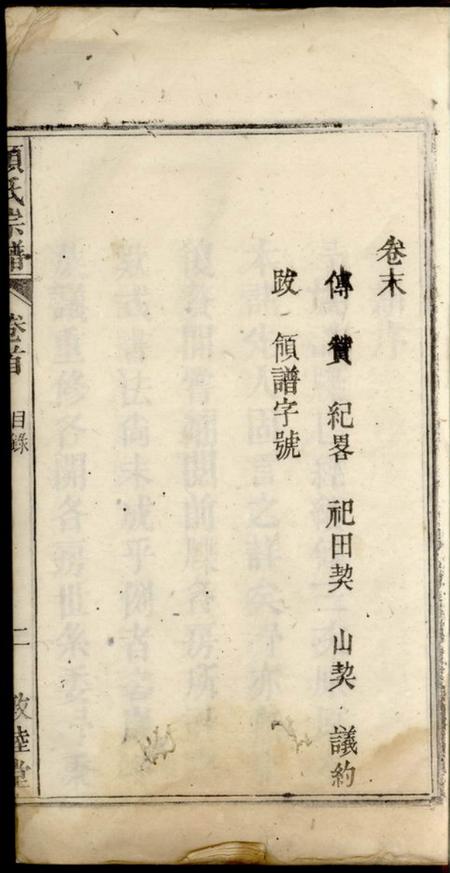 卷末
傳 贊 紀畧 祀田契 山契 議約
跋 領譜字號
項氏宗譜 卷首 目錄 二 敦睦堂